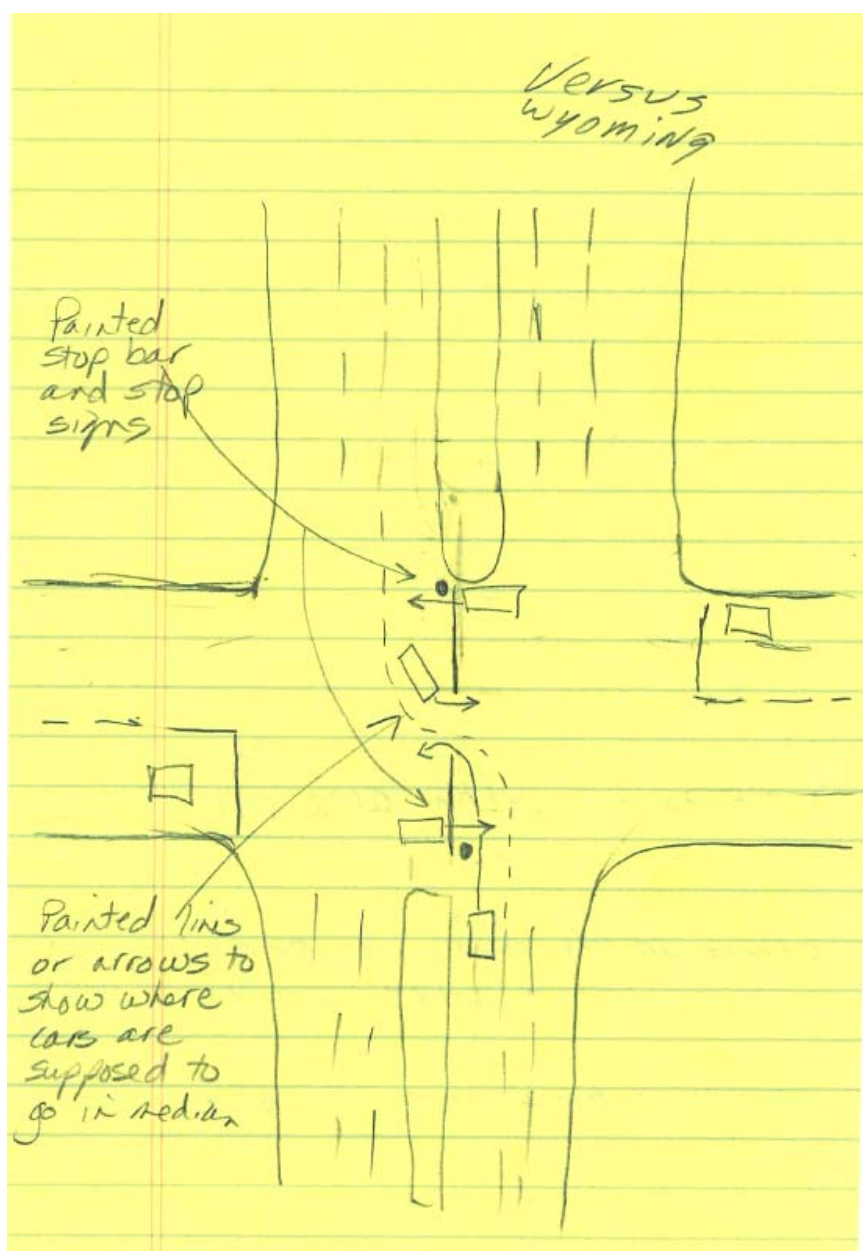 Versus
Wyoming
Painted
stop bar
and stop
signs
Painted lines
or arrows to
show where
cars are
supposed to
go in median